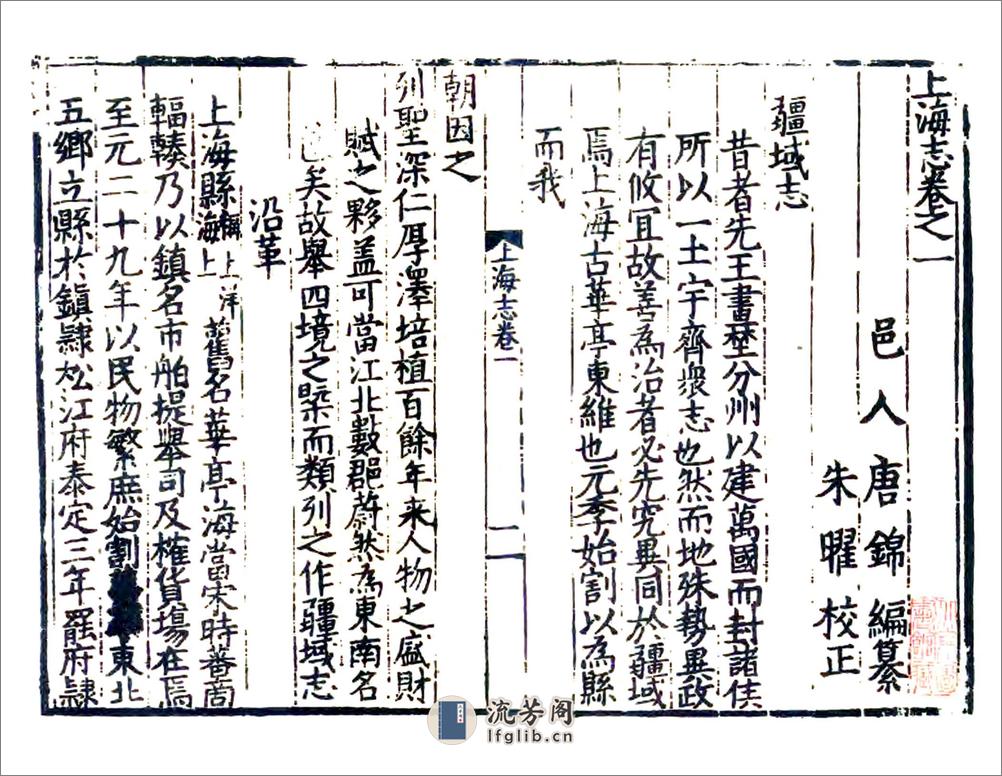 上海志卷之一
邑人唐錦編纂
朱曜校正
疆域志
昔者先王畫埜分州以建萬國而封諸侯
所以一土宇齊衆志也然而地殊勢異政
有攸宜故善為治者必先究異同於疆域
焉上海古華亭東維也元季始割以為縣
而我
上海志卷一
一
朝因之
列聖深仁厚澤培植百餘年来人物之盛財
賦之夥盖可當江北數郡蔚然為東南名
邑矣故舉四境之槩而類列之作疆域志
沿革
上海縣稱上洋海上舊名華亭海當宋時蕃商
輻輳乃以鎮名市舶提舉司及榷貨場在焉
至元二十九年以民物繁庶始割東北
五鄉立縣於鎮隷松江府泰定三年罷府隷
流芳阁
lfglib.cn